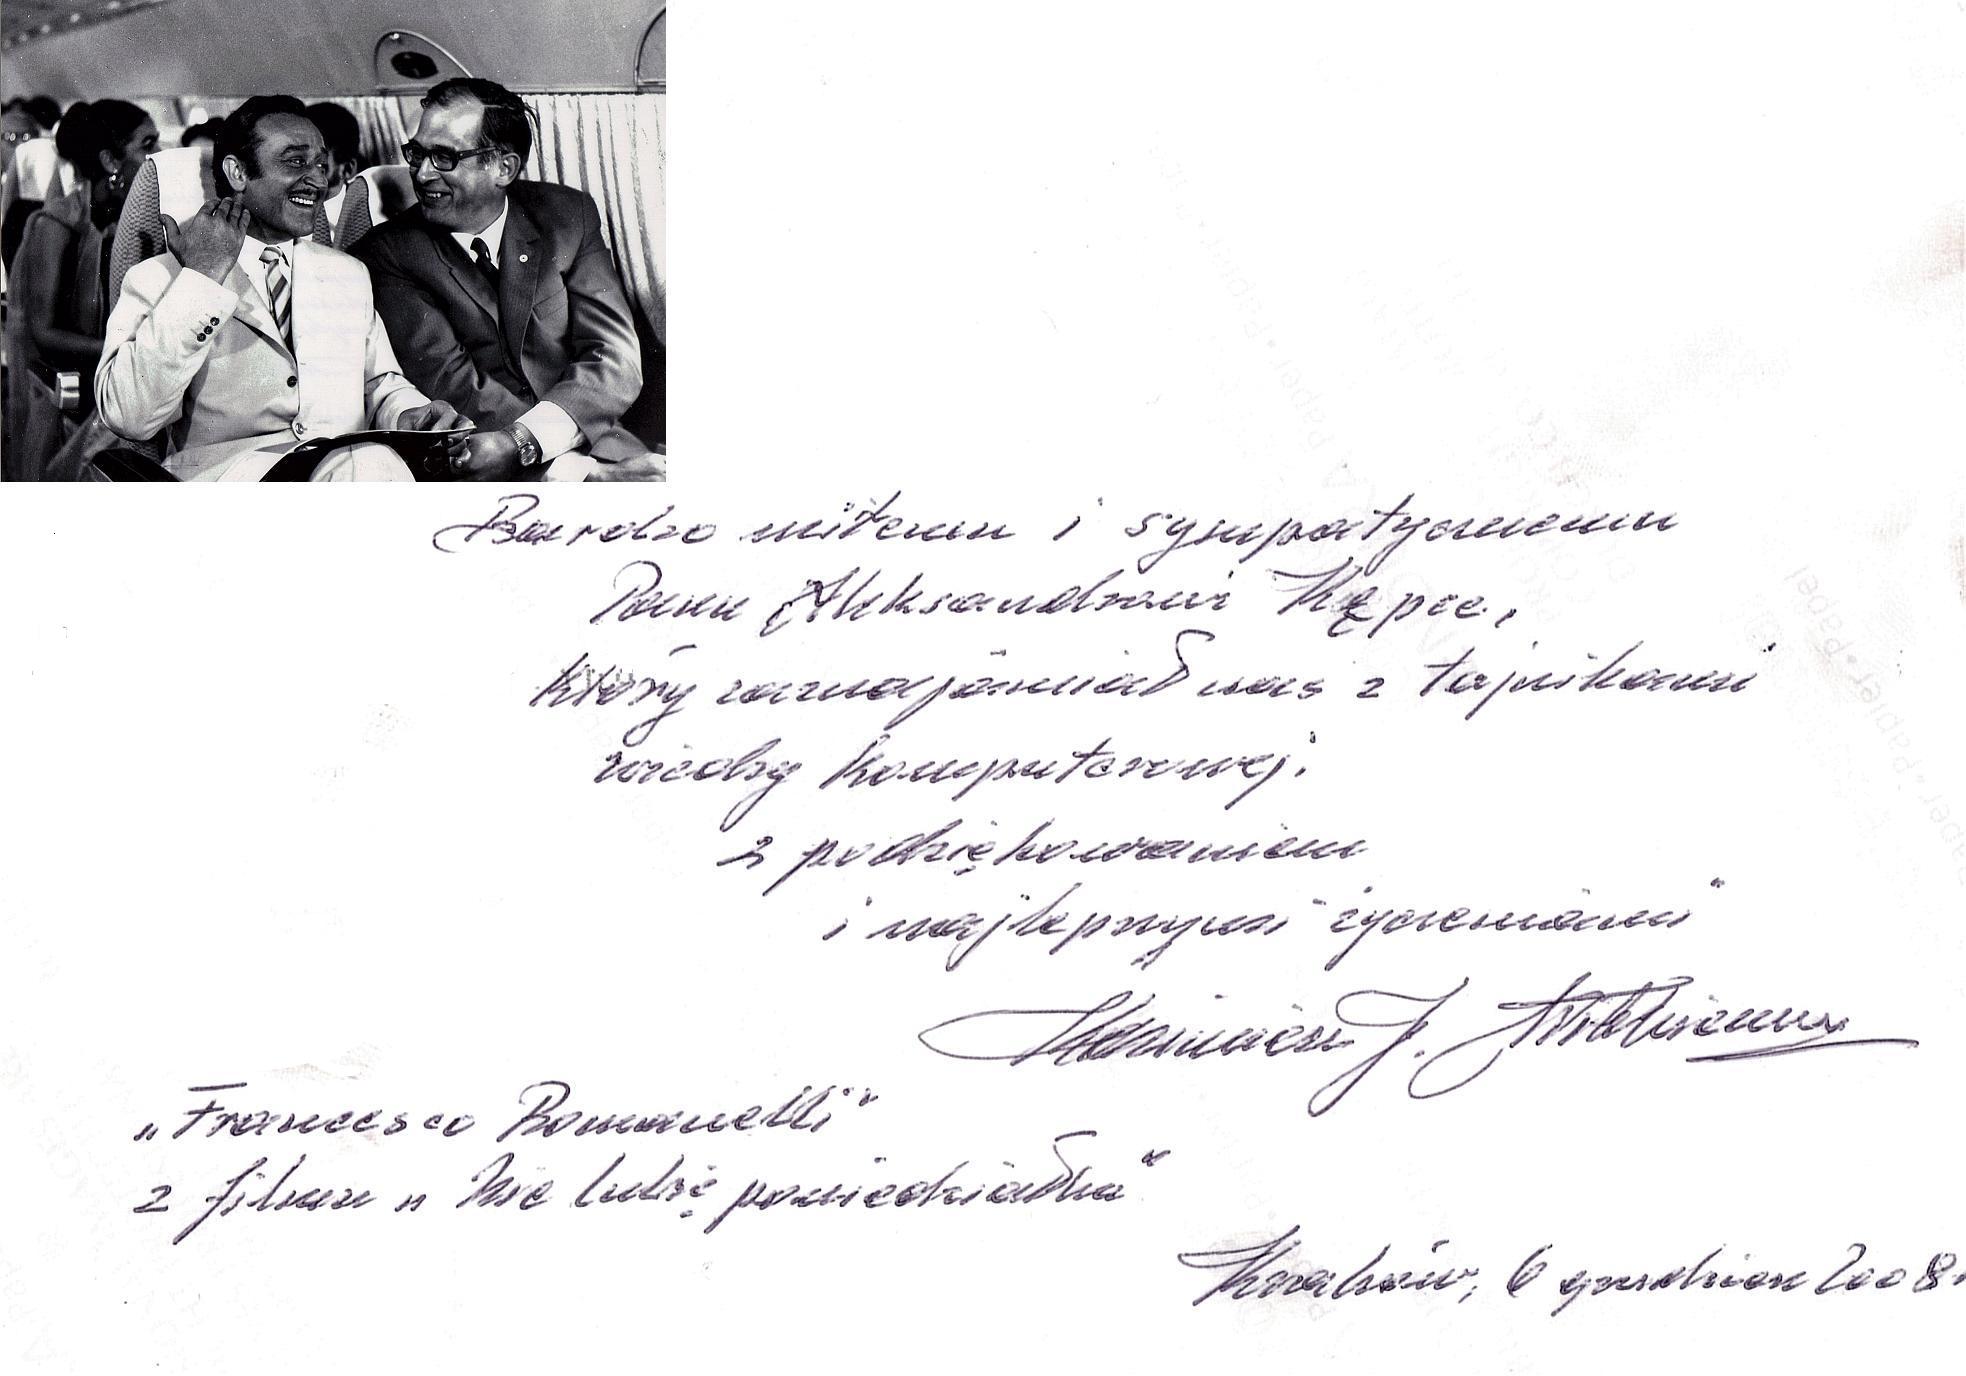 Bardzo miłemu i sympatycznemu
Panu Aleksandrowi Kępce,
który zaznajamiał nas z tajnikami
wiedzy komputerowej.
z podziękowaniem
i najlepszymi życzeniami
Kazimierz J.
„Francesco Romanelli"
z filmu „Nie lubię poniedziałku"
Kraków, 6 grudzien 2008.